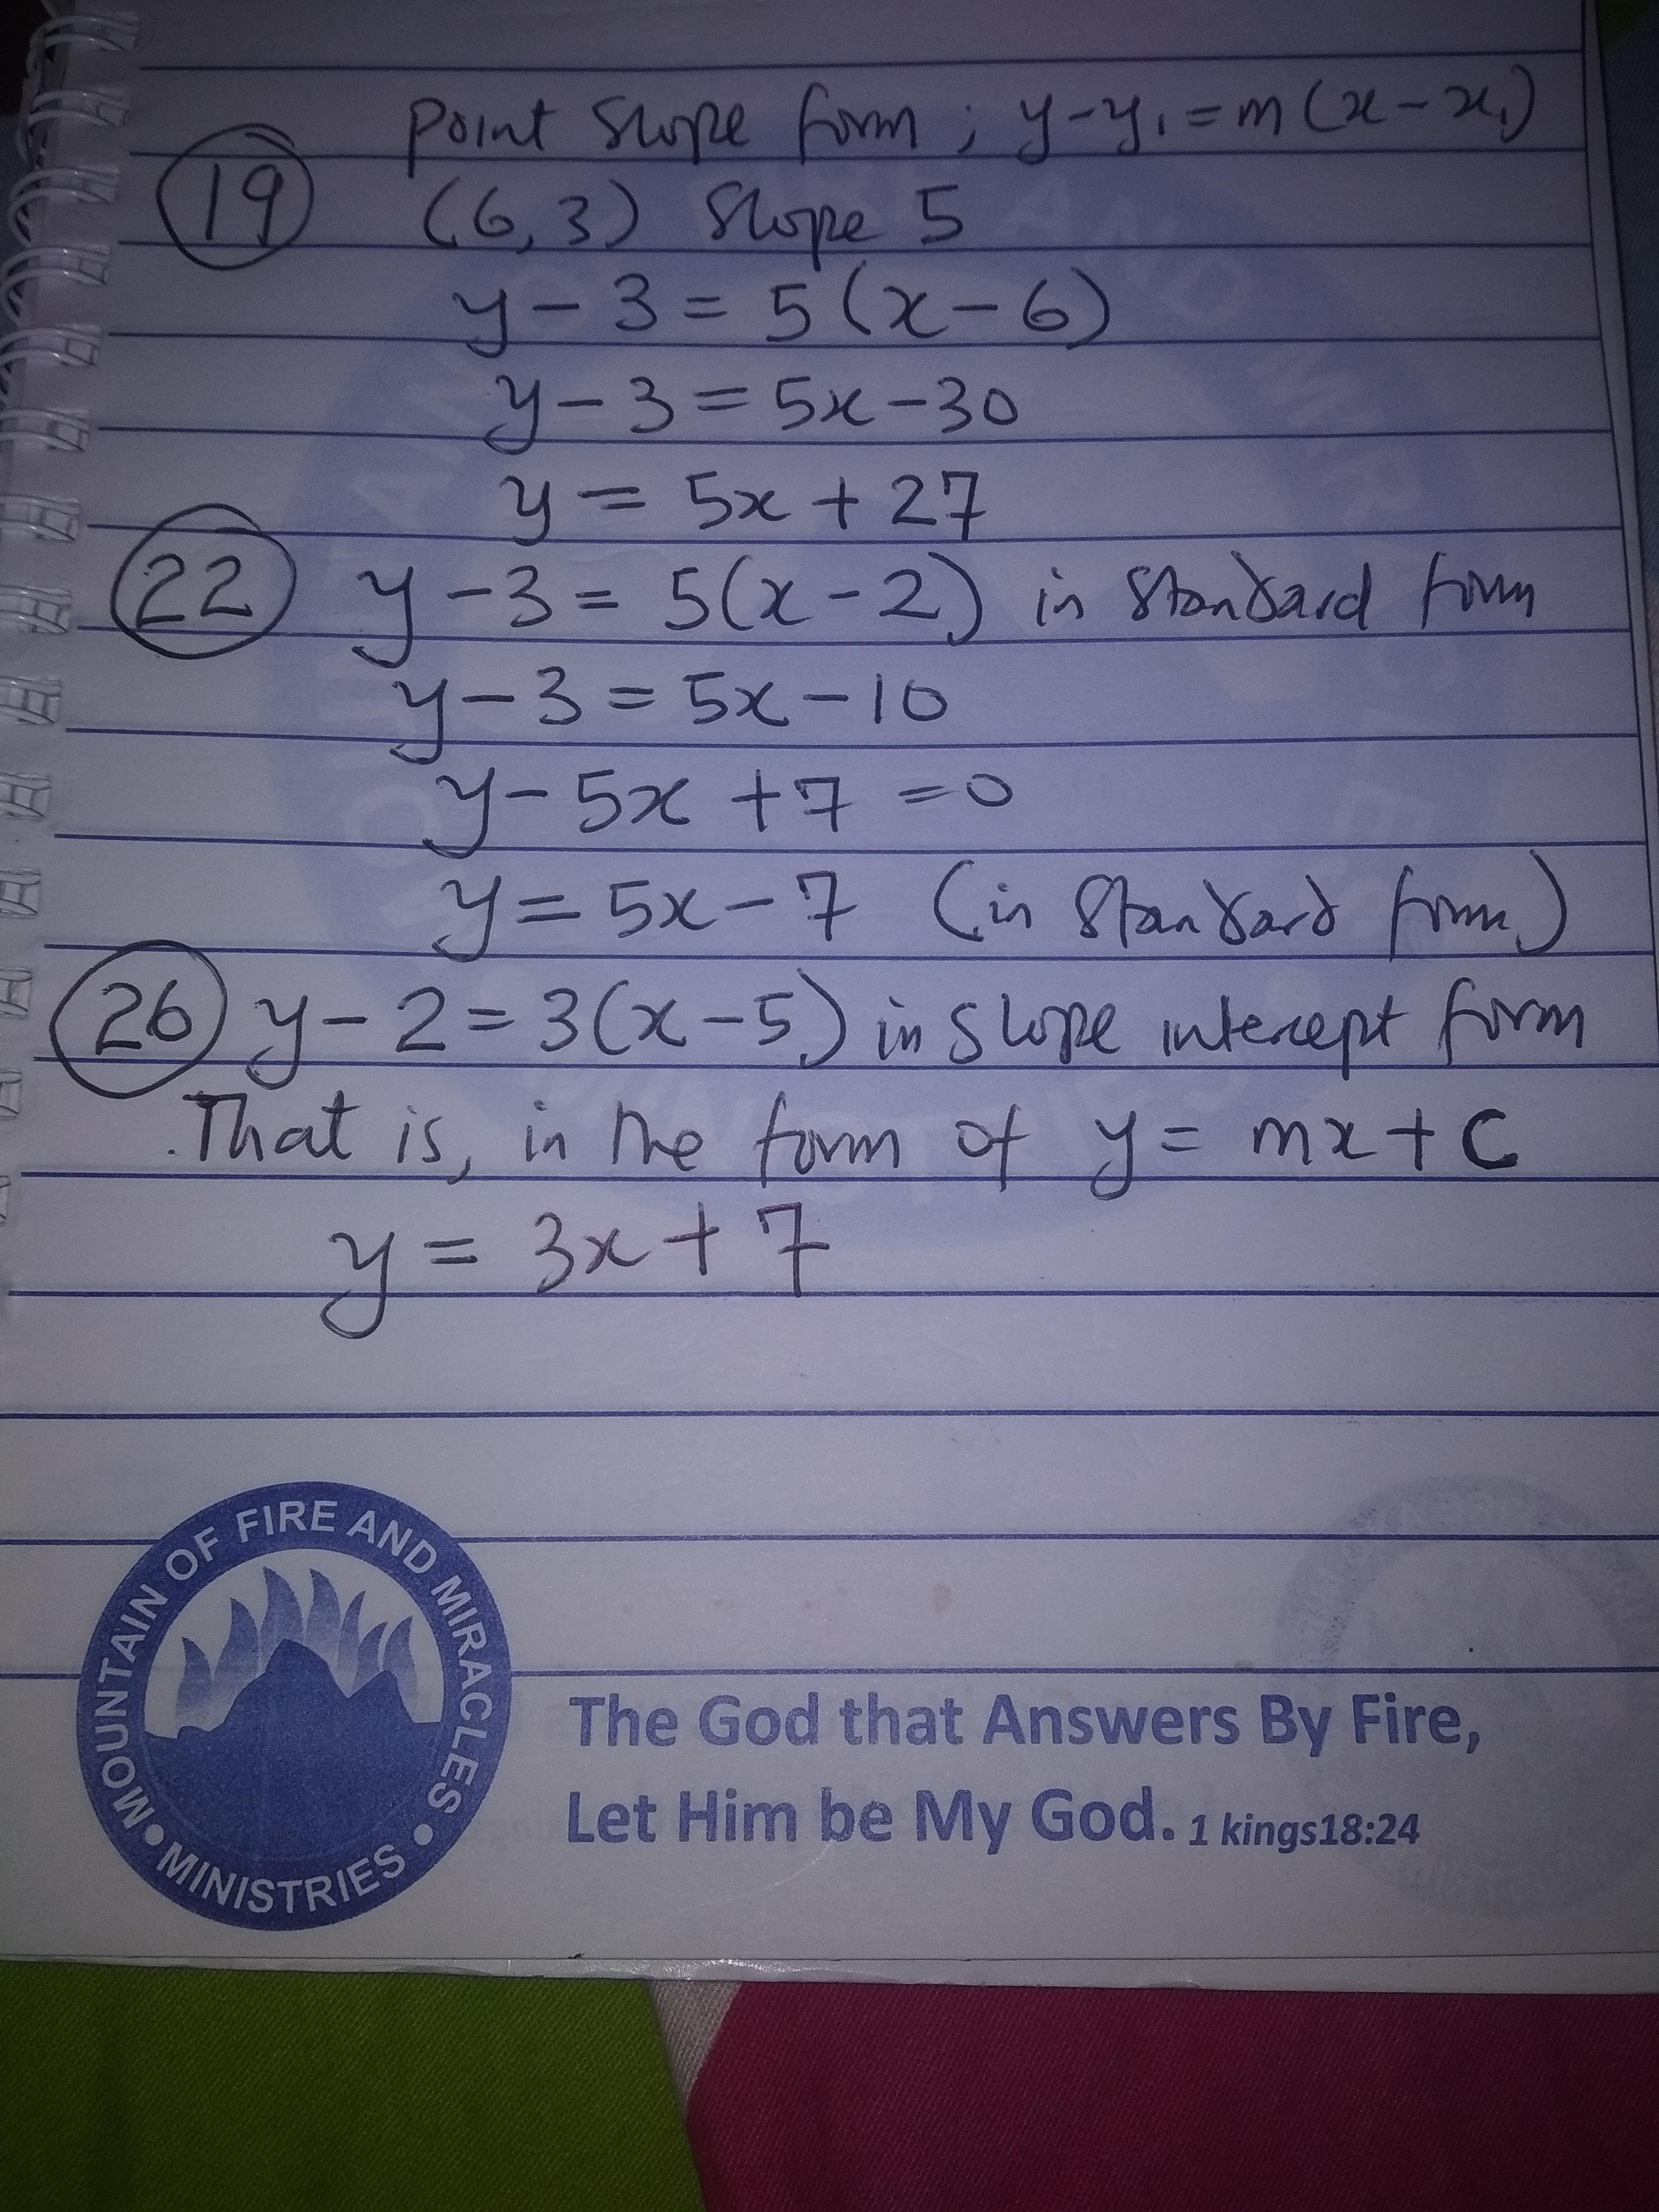 Point Slope form; y-y₁=m(x-x₁)
19 (6,3) Slope 5
y-3=5(x-6)
y-3=5x-30
y=5x+27
22 y-3=5(x-2) in Standard form
y-3=5x-10
y-5x+7=0
y=5x-7 (in Standard form)
26 y-2=3(x-5) in Slope intercept form
That is, in the form of y=mx+c
y=3x+7
MOUNTAIN OF FIRE AND MIRACLES
• MINISTRIES •
The God that Answers By Fire,
Let Him be My God. 1 kings18:24